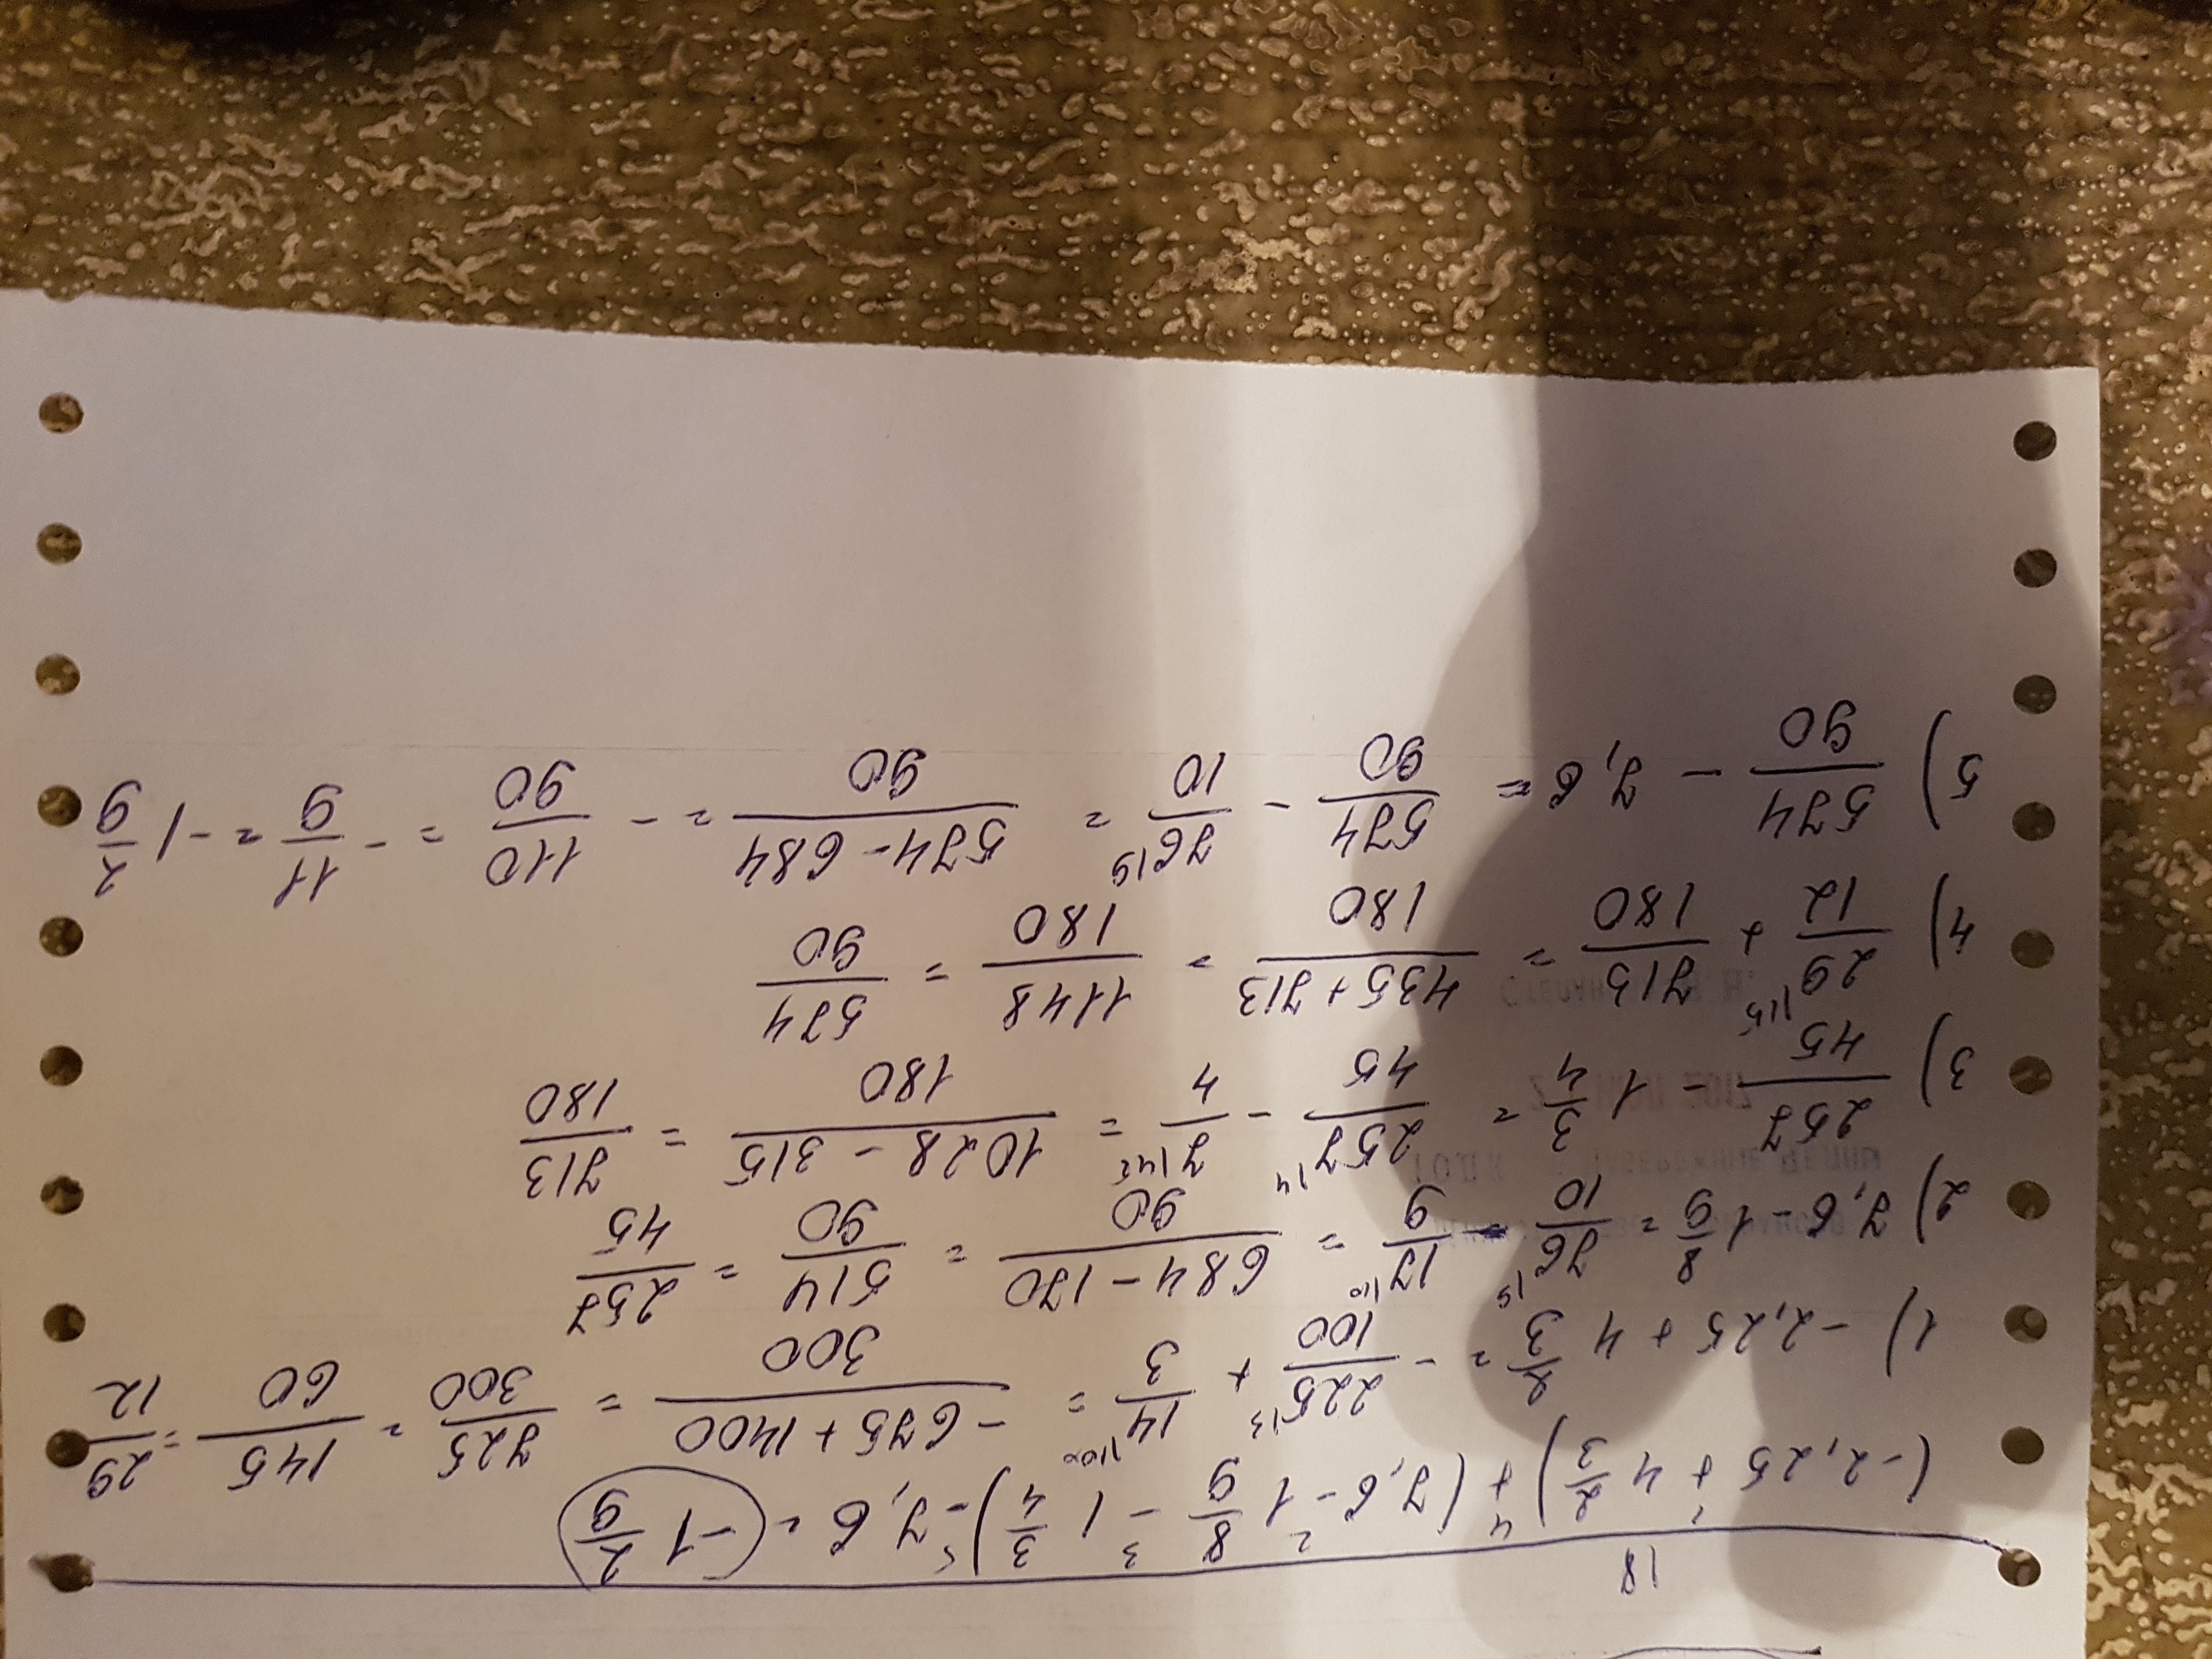 18
(-2,25 + 4 2/3) + (7,6 - 1 8/9 - 1 3/4) - 7,6 = -1 2/9
1) -2,25 + 4 2/3 = - 225/100 + 14/3 = (-675 + 1400)/300 = 725/300 = 145/60 = 29/12
2) 7,6 - 1 8/9 = 76/10 - 17/9 = (684 - 170)/90 = 514/90 = 257/45
3) 257/45 - 1 3/4 = 257/45 - 7/4 = (1028 - 315)/180 = 713/180
4) 29/12 + 713/180 = (435 + 713)/180 = 1148/180 = 574/90
5) 574/90 - 7,6 = 574/90 - 76/10 = (574 - 684)/90 = - 110/90 = - 11/9 = -1 2/9